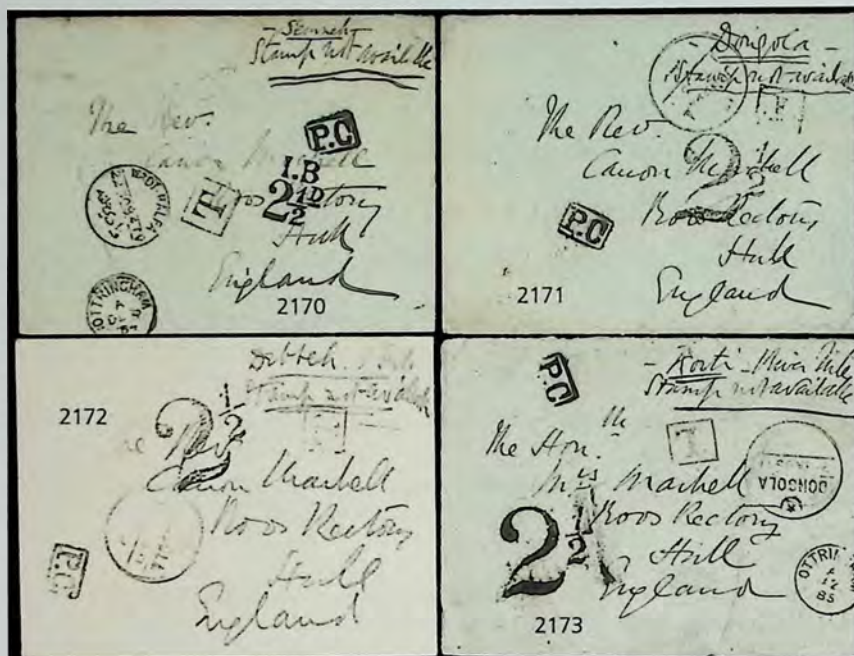 Semneh
Stamp not available
The Rev.
Canon Machell
Roos Rectory
Hull
England
P.C
I.B
2½D
T
WADI-HALFA
OTTRINGHAM
2170
Dongola
Stamp not available
The Rev.
Canon Machell
Roos Rectory
Hull
England
P.C
2½
T
2171
Debbeh
Stamp not available
2172
2½
Rev.
Canon Machell
Roos Rectory
Hull
England
P.C
Korti - River Nile
Stamp not available
P.C
T
The Hon.
Mrs Machell
Roos Rectory
Hull
England
DONGOLA
2½
OTTRIN
A
12
85
2173